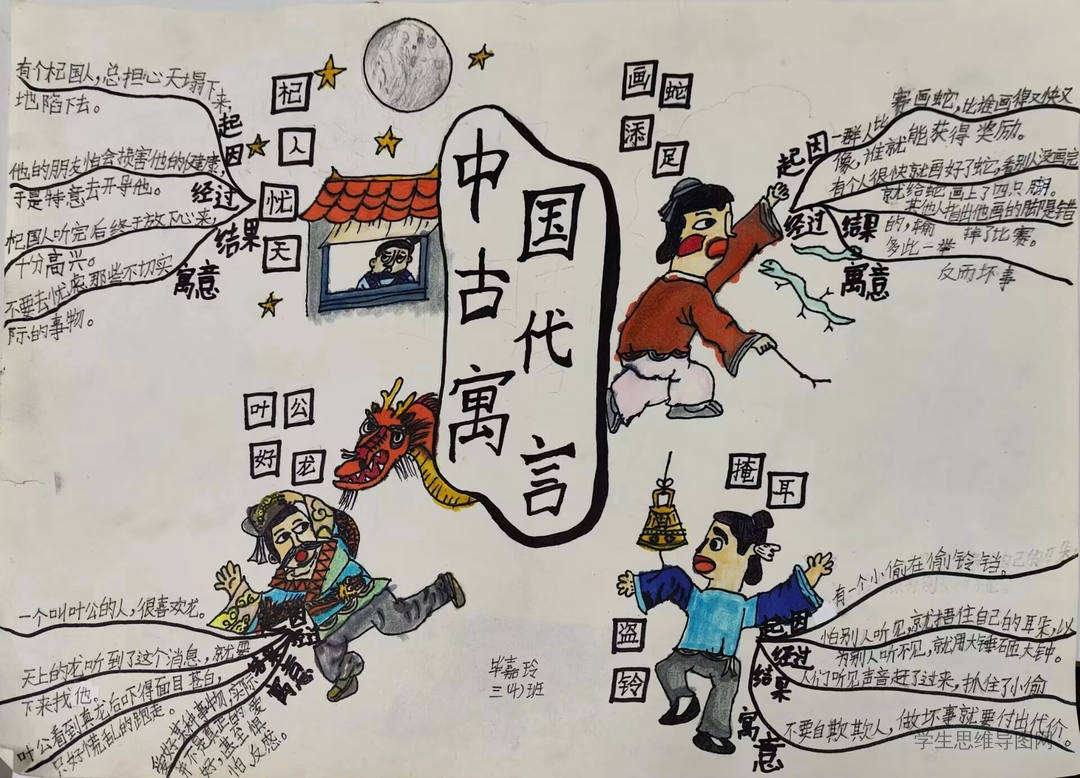 中国古代寓言
杞人忧天
起因
有个杞国人，总担心天塌下来，
地陷下去。
经过
他的朋友怕会损害他的健康，
于是特意去开导他。
结果
杞国人听完后终于放下心来，
十分高兴。
寓意
不要去忧虑那些不切实
际的事物。
画蛇添足
起因
一群人比赛画蛇，比谁画得又快又
像，谁就能获得奖励。
经过
有个人很快就画好了蛇，看别人没画完
就给蛇画上了四只脚。
结果
其他人指出他画的脚是错
的，输掉了比赛。
寓意
多此一举
反而坏事
叶公好龙
起因
一个叫叶公的人，很喜欢龙。
经过
天上的龙听到了这个消息，就要
下来找他。
结果
叶公看到真龙后吓得面目苍白，
只好慌乱的跑走。
寓意
好某种事物，实际
并不是真的爱
好，甚至惧
怕反感。
掩耳盗铃
起因
有一个小偷在偷铃铛。
经过
怕别人听见，就捂住自己的耳朵，以
为别人听不见，就用大锤砸大钟。
结果
人们听见声音赶了过来，抓住了小偷
寓意
不要自欺欺人，做坏事就要付出代价。
毕嘉玲
三（4）班
学生思维导图网